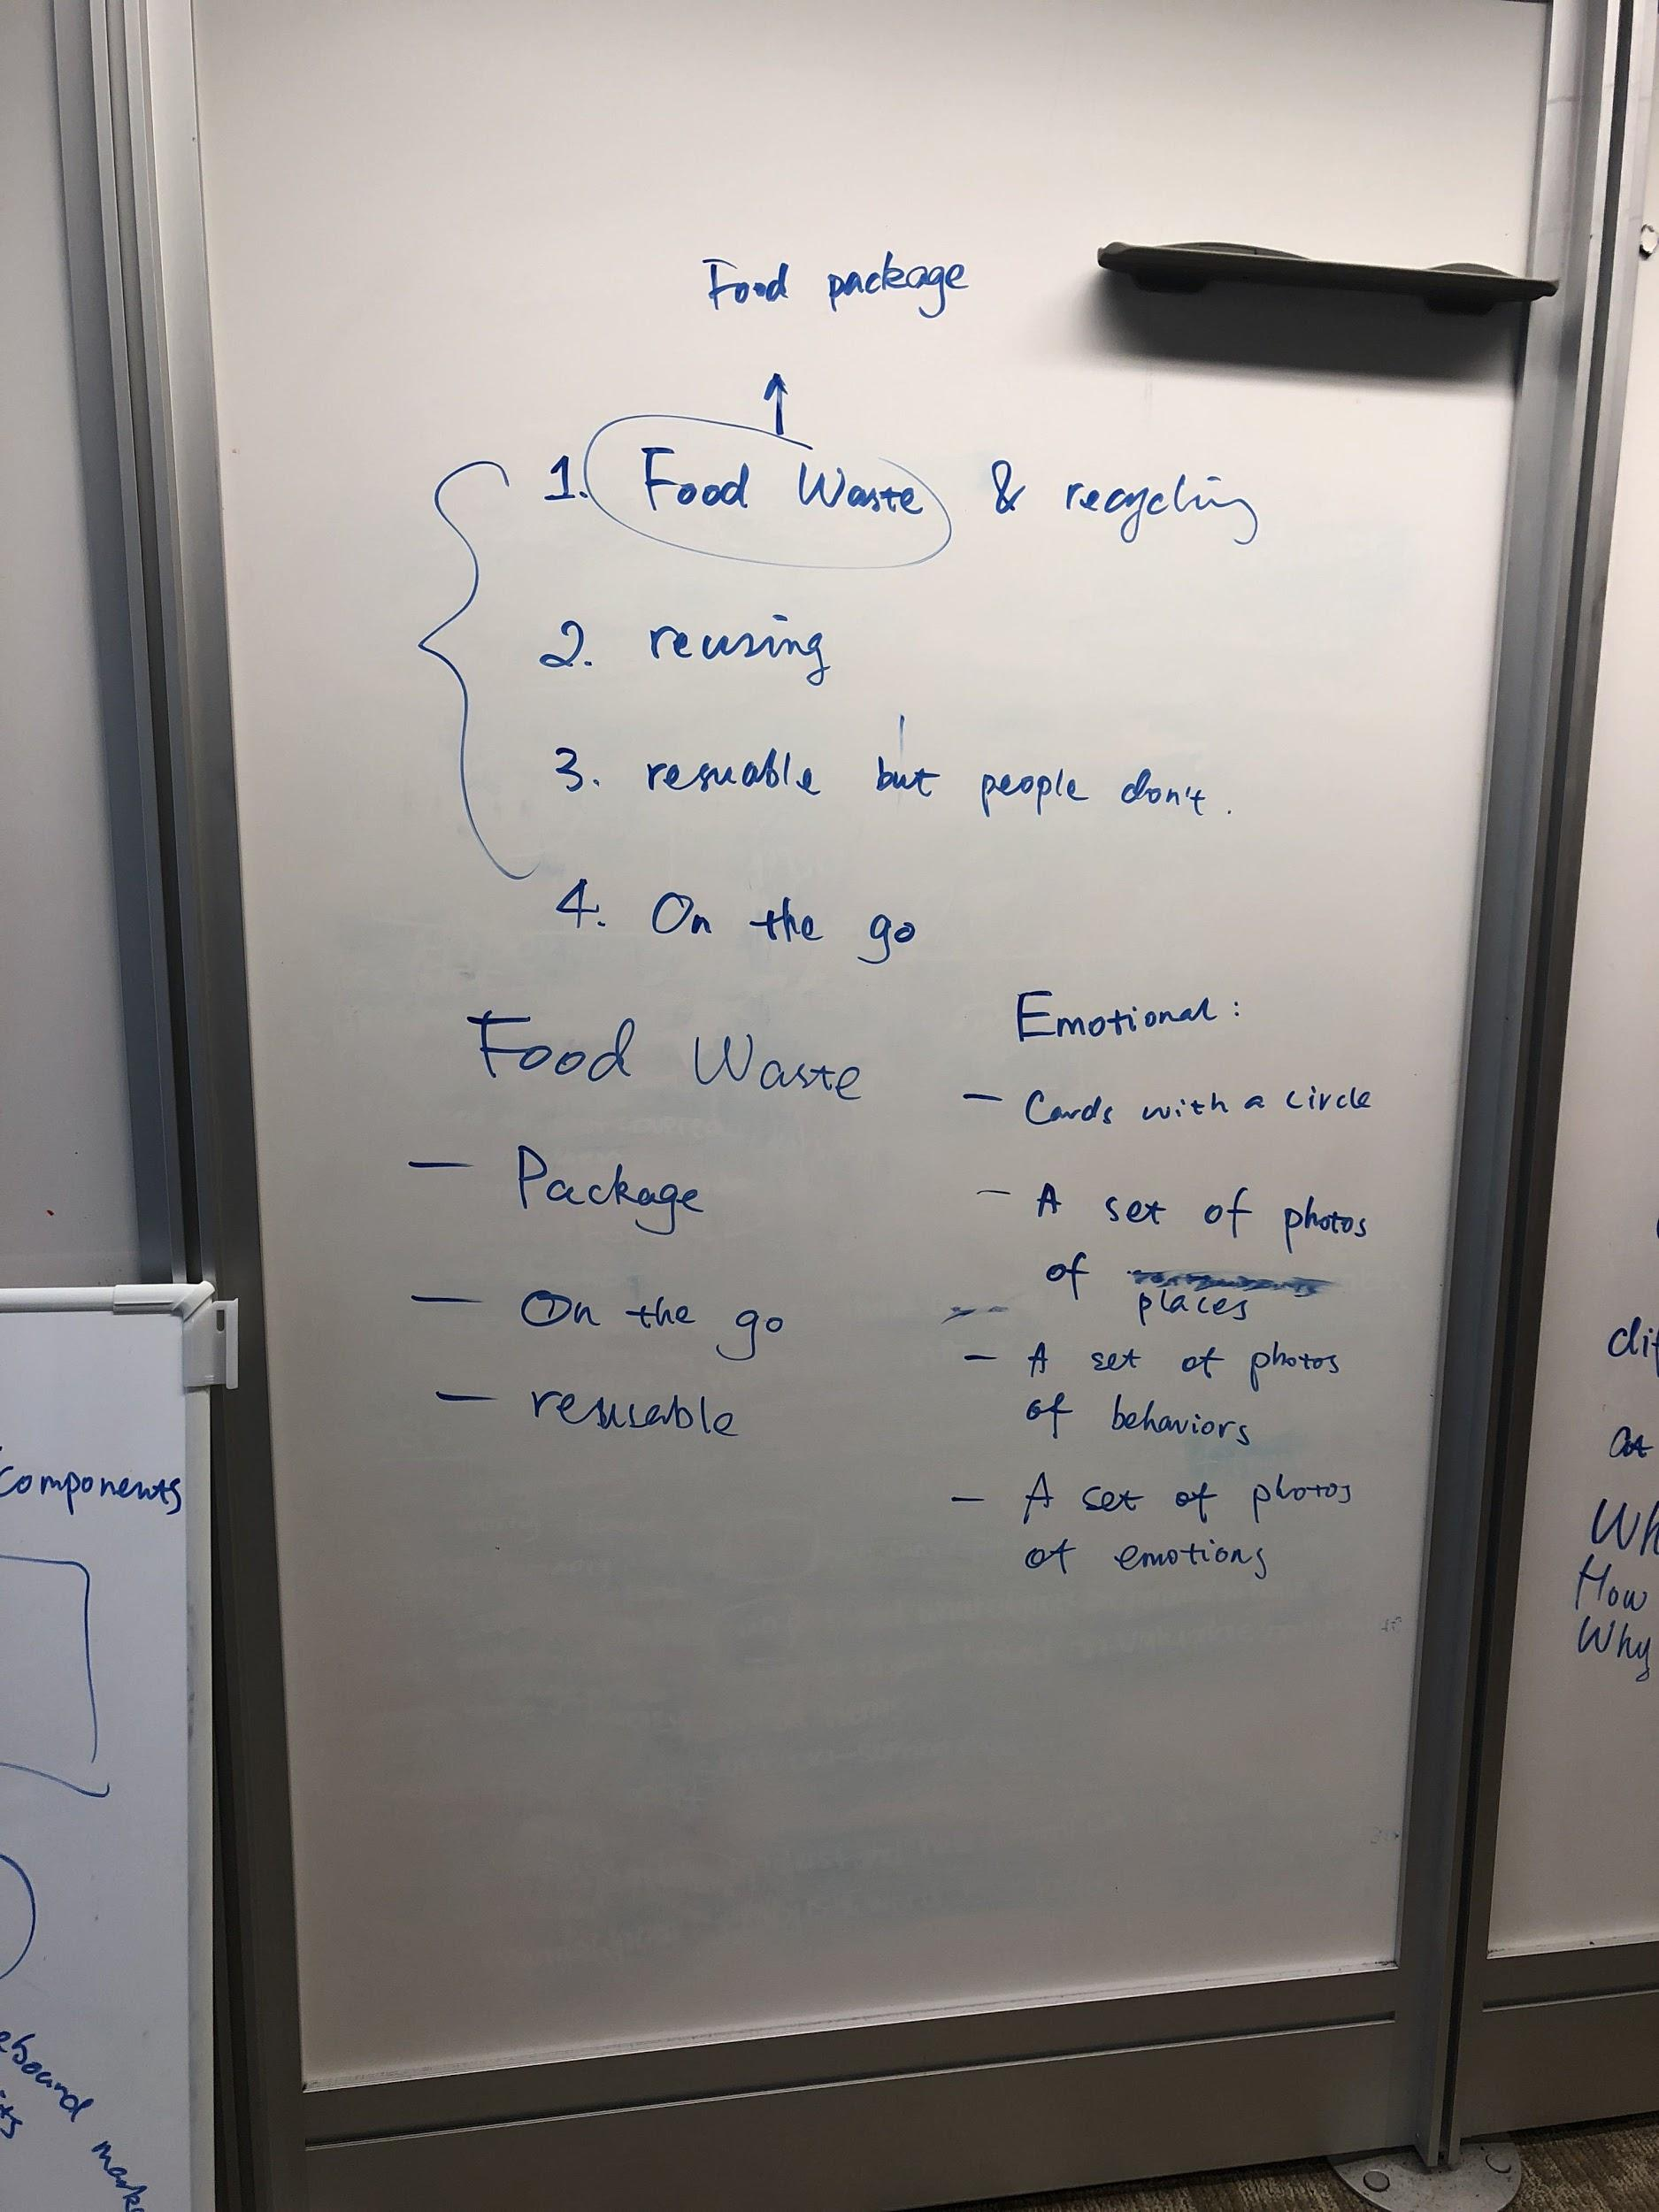 Food package
1. Food Waste & recycling
2. reusing
3. resuable but people don't.
4. On the go
Food Waste
- Package
- On the go
- resusable
Emotional:
- Cards with a circle
- A set of photos
of
places
- A set of photos
of behaviors
- A set of photos
of emotions
components
How
Why